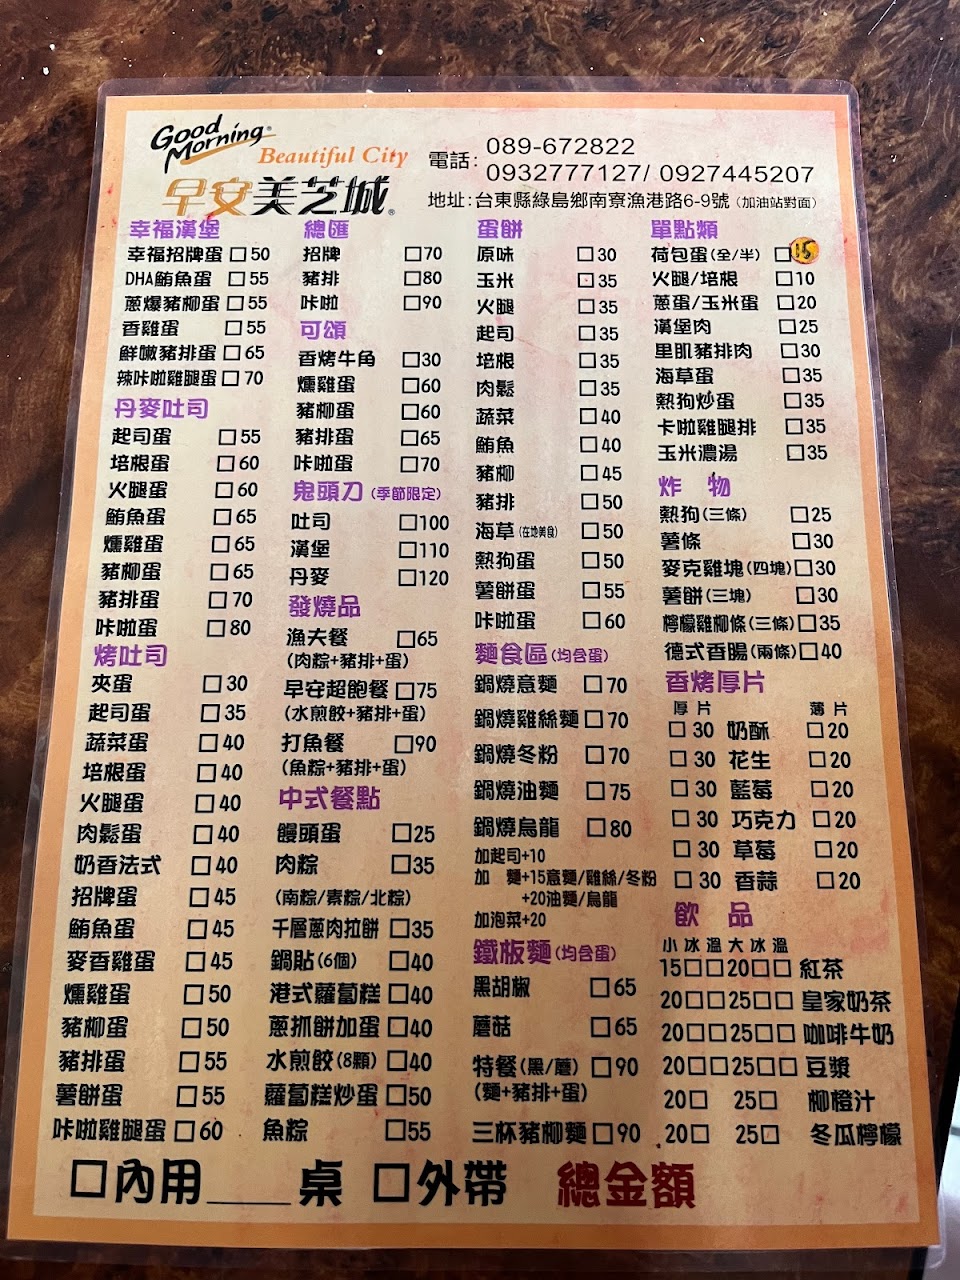 Good Morning®
Beautiful City
早安美芝城®
電話: 089-672822
0932777127/ 0927445207
地址:台東縣綠島鄉南寮漁港路6-9號 (加油站對面)
幸福漢堡
幸福招牌蛋 □ 50
DHA鮪魚蛋 □ 55
蔥爆豬柳蛋 □ 55
香雞蛋 □ 55
鮮嫩豬排蛋 □ 65
辣咔啦雞腿蛋 □ 70
丹麥吐司
起司蛋 □ 55
培根蛋 □ 60
火腿蛋 □ 60
鮪魚蛋 □ 65
燻雞蛋 □ 65
豬柳蛋 □ 65
豬排蛋 □ 70
咔啦蛋 □ 80
烤吐司
夾蛋 □ 30
起司蛋 □ 35
蔬菜蛋 □ 40
培根蛋 □ 40
火腿蛋 □ 40
肉鬆蛋 □ 40
奶香法式 □ 40
招牌蛋 □ 45
鮪魚蛋 □ 45
麥香雞蛋 □ 45
燻雞蛋 □ 50
豬柳蛋 □ 50
豬排蛋 □ 55
薯餅蛋 □ 55
咔啦雞腿蛋 □ 60
總匯
招牌 □ 70
豬排 □ 80
咔啦 □ 90
可頌
香烤牛角 □ 30
燻雞蛋 □ 60
豬柳蛋 □ 60
豬排蛋 □ 65
咔啦蛋 □ 70
鬼頭刀 (季節限定)
吐司 □ 100
漢堡 □ 110
丹麥 □ 120
發燒品
漁夫餐 □ 65
(肉粽+豬排+蛋)
早安超飽餐 □ 75
(水煎餃+豬排+蛋)
打魚餐 □ 90
(魚粽+豬排+蛋)
中式餐點
饅頭蛋 □ 25
肉粽 □ 35
(南粽/素粽/北粽)
千層蔥肉拉餅 □ 35
鍋貼(6個) □ 40
港式蘿蔔糕 □ 40
蔥抓餅加蛋 □ 40
水煎餃(8顆) □ 40
蘿蔔糕炒蛋 □ 50
魚粽 □ 55
蛋餅
原味 □ 30
玉米 □ 35
火腿 □ 35
起司 □ 35
培根 □ 35
肉鬆 □ 35
蔬菜 □ 40
鮪魚 □ 40
豬柳 □ 45
豬排 □ 50
海草(在地美食) □ 50
熱狗蛋 □ 50
薯餅蛋 □ 55
咔啦蛋 □ 60
麵食區(均含蛋)
鍋燒意麵 □ 70
鍋燒雞絲麵 □ 70
鍋燒冬粉 □ 70
鍋燒油麵 □ 75
鍋燒烏龍 □ 80
加起司+10
加 麵+15意麵/雞絲/冬粉
+20油麵/烏龍
加泡菜+20
鐵板麵(均含蛋)
黑胡椒 □ 65
蘑菇 □ 65
特餐(黑/蘑) □ 90
(麵+豬排+蛋)
三杯豬柳麵 □ 90
單點類
荷包蛋(全/半) □ 15
火腿/培根 □ 10
蔥蛋/玉米蛋 □ 20
漢堡肉 □ 25
里肌豬排肉 □ 30
海草蛋 □ 35
熱狗炒蛋 □ 35
卡啦雞腿排 □ 35
玉米濃湯 □ 35
炸 物
熱狗(三條) □ 25
薯條 □ 30
麥克雞塊(四塊) □ 30
薯餅(三塊) □ 30
檸檬雞柳條(三條) □ 35
德式香腸(兩條) □ 40
香烤厚片
厚片 薄片
□ 30 奶酥 □ 20
□ 30 花生 □ 20
□ 30 藍莓 □ 20
□ 30 巧克力 □ 20
□ 30 草莓 □ 20
□ 30 香蒜 □ 20
飲 品
小 冰 溫 大 冰 溫
15□□20□□ 紅茶
20□□25□□ 皇家奶茶
20□□25□□ 咖啡牛奶
20□□25□□ 豆漿
20□ 25□ 柳橙汁
20□ 25□ 冬瓜檸檬
□內用____桌 □外帶 總金額